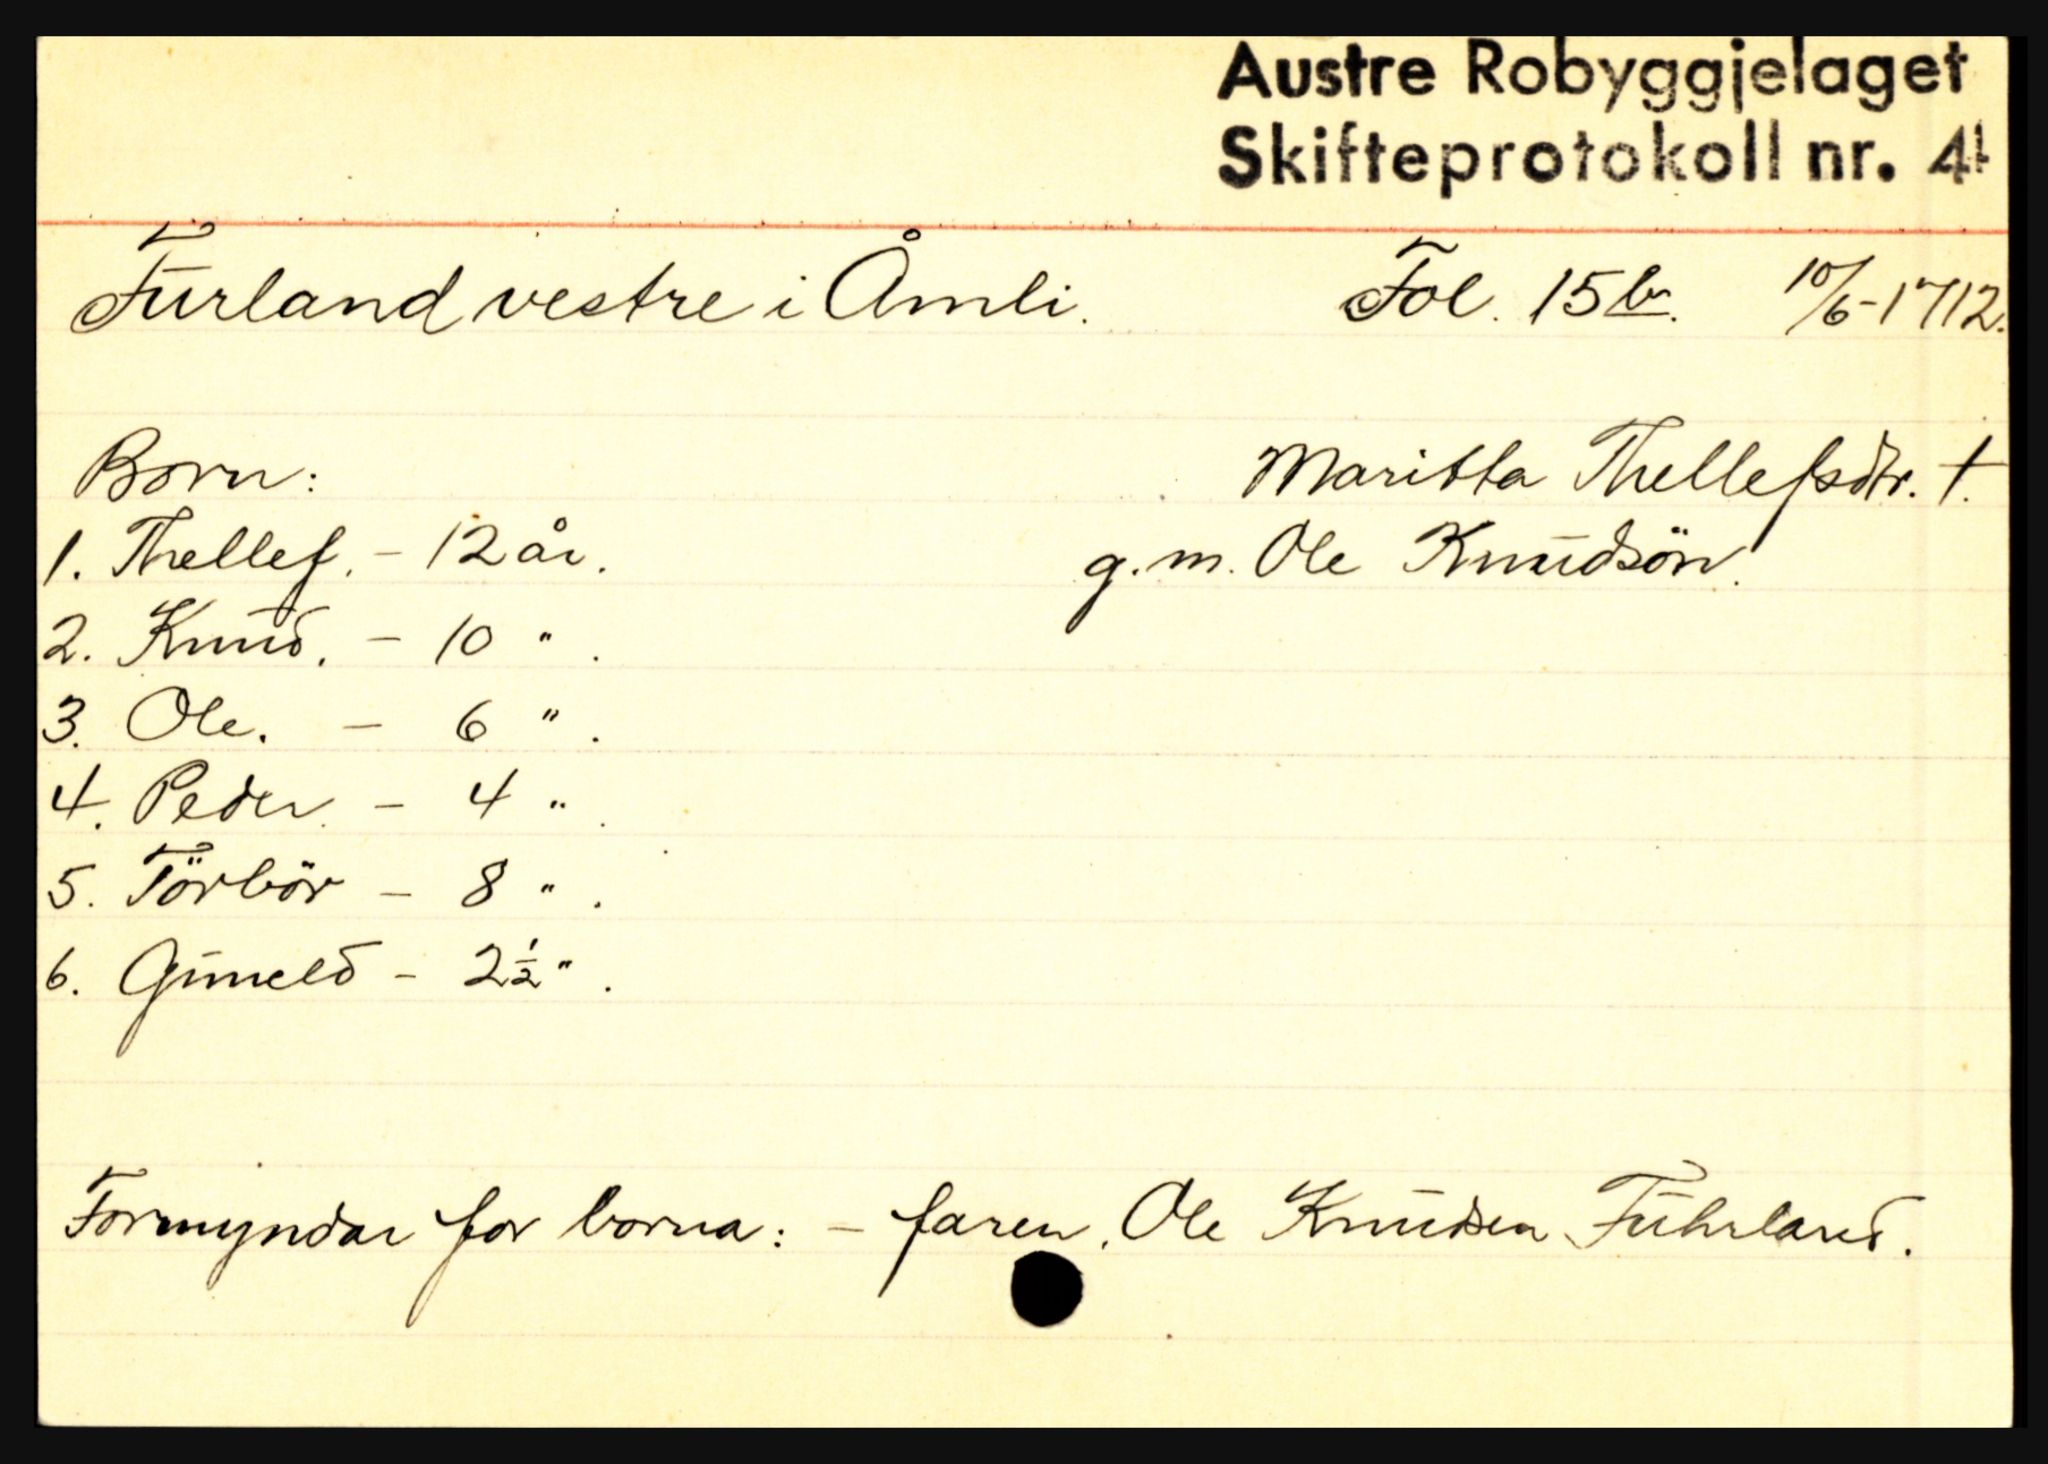 Austre Robyggjelaget
Skifteprotokoll nr. 4
Furland vestre i Åmli. Fol. 15b. 10/6-1712.
Born: Maritta Thellefsdtr. †.
1. Thellef. - 12 år. g.m. Ole Knudsön.
2. Knud. - 10 " .
3. Ole. - 6 " .
4. Peder. - 4 " .
5. Törbör - 8 " .
6. Guneld - 2½ " .
Formyndar for borna: - faren, Ole Knudsen Fuhrland.